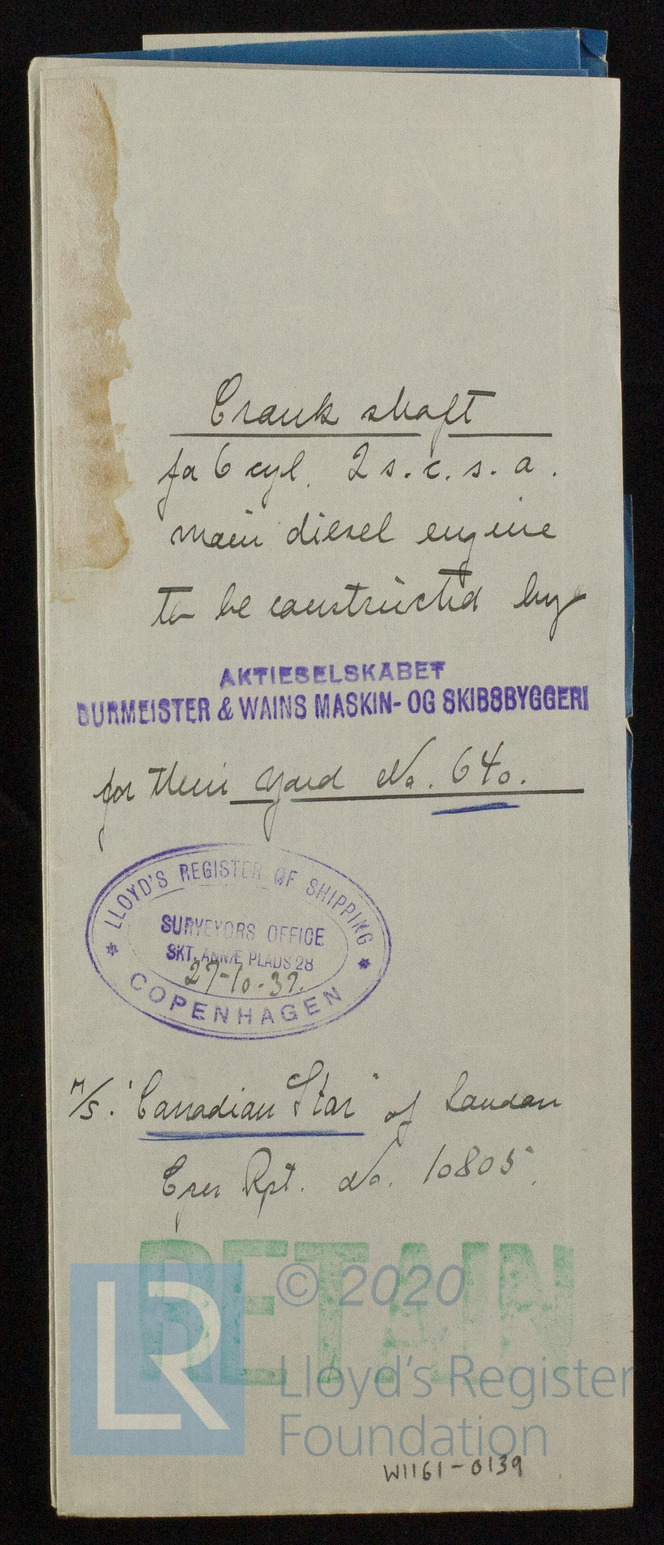 Crank shaft
for 6 cyl. 2 s.c.s.a.
main diesel engine
to be constructed by
AKTIESELSKABET
BURMEISTER & WAINS MASKIN- OG SKIBSBYGGERI
for their Yard No. 640.
LLOYD'S REGISTER OF SHIPPING
SURVEYORS OFFICE
SKT. ANNÆ PLADS 28
27-10-37.
COPENHAGEN
M/S. "Canadian Star" of London
Cpn Rpt. No. 10805.
RETAIN
LR
© 2020
Lloyd's Register
Foundation
W1161-0139